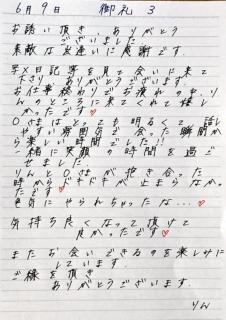 6月9日 御礼 3
お誘い頂き ありがとう
ございました
素敵な出逢いに感謝です。
写メ日記等を見て会いに来て
下さり ありがとうございます
お仕事終わりでお疲れの中、り
んのところに来てくれて嬉し
かったです♡
Oさまはとっても明るくて 話し
やすい雰囲気で 会った瞬間か
ら楽しい時間でした!!
一緒に笑顔の時間を過ご
せました。
りんとOさまが抱き合った
時からドキドキが止まらなかっ
たです♡
色気にやられちゃったな…♡
気持ち良くなって頂けて
良かったです♡
またお会いできるのを楽しみに
しています。
お様を頂き
ありがとうございます。
りん